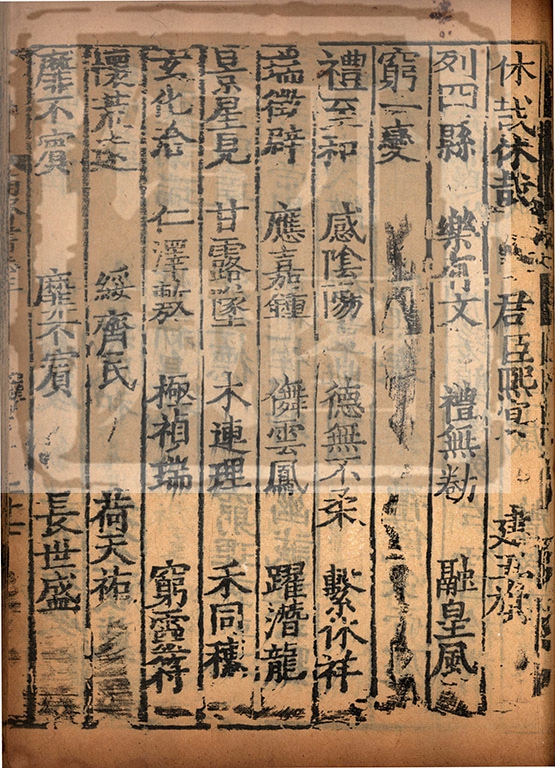 休哉休哉 君臣熙宴 建五旗
列四縣 樂有文 禮無勌 融皇風
窮一變
禮至和 感陰陽 德無不柔 繫休祥
瑞徵辟 應嘉鍾 儛雲鳳 躍潛龍
景星見 甘露墜 木連理 禾同穗
玄化洽 仁澤敷 極禎瑞 窮靈符
懷荒裔 綏齊民 荷天祐
靡不賓 靡不賓 長世盛